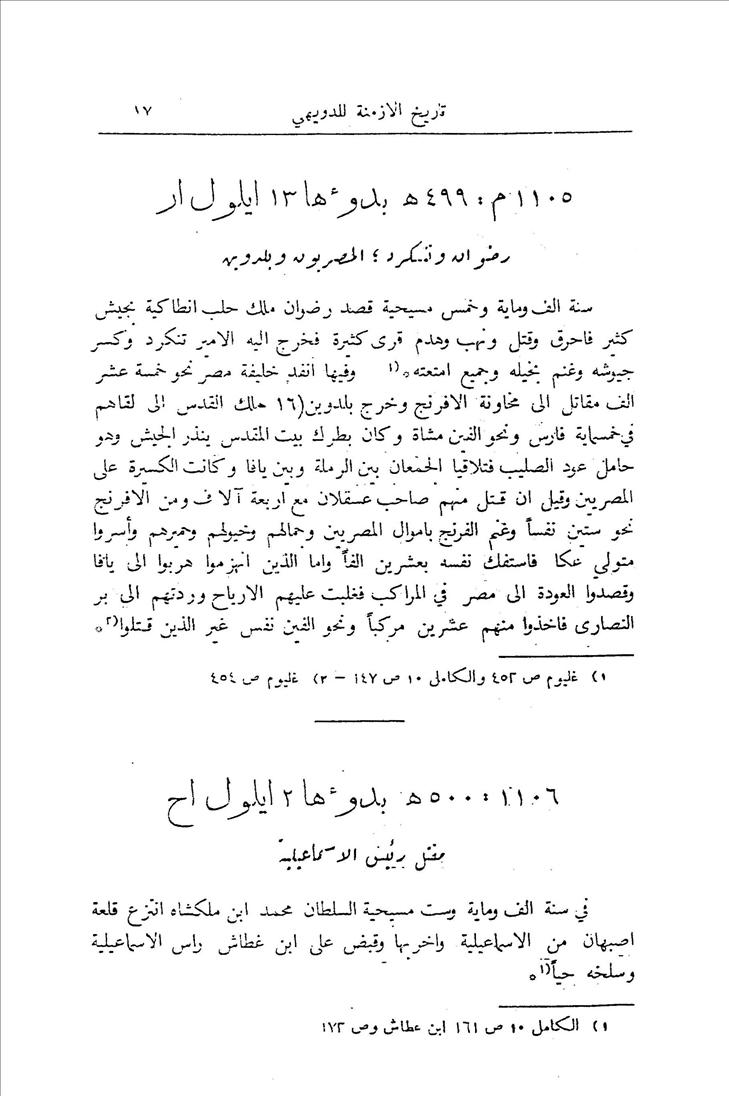 تاريخ الازمنة للدويهي ١٧
١١٠٥ م : ٤٩٩ ه بدوءها ١٣ ايلول ار
رضوان وتنكرد ؛ المصريون وبلدوين
سنة الف وماية وخمس مسيحية قصد رضوان ملك حلب انطاكية بجيش
كثير فاحرق وقتل ونهب وهدم قرى كثيرة فخرج اليه الامير تنكرد وكسر
جيوشه وغنم بخيله وجميع امتعته٠(١ وفيها انفد خليفة مصر نحو خمسة عشر
الف مقاتل الى محاونة الافرنج وخرج بلدوين(١٦ ملك القدس الى لقاهم
في خمسماية فارس ونحو الفين مشاة وكان بطرك بيت المقدس ينذر الجيش وهو
حامل عود الصليب فتلاقيا الجمعان بين الرملة وبين يافا وكانت الكسيرة على
المصريين وقيل ان قتل منهم صاحب عسقلان مع اربعة آلاف ومن الافرنج
نحو ستين نفساً وغنم الفرنج باموال المصريين وجمالهم وخيولهم وحميرهم وأسروا
متولي عكا فاستفك نفسه بعشرين الفاً واما الذين انهزموا هربوا الى يافا
وقصدوا العودة الى مصر في المراكب فغلبت عليهم الارياح وردتهم الى بر
النصارى فاخذوا منهم عشرين مركباً ونحو الفين نفس غير الذين قتلوا(٢٠
١) غليوم ص ٤٥٢ والكامل ١٠ ص ١٤٧ – ٢) غليوم ص ٤٥٤
١١٠٦ : ٥٠٠ ه بدوءها ٢ ايلول اح
مقتل رئيس الاسماعيلية
في سنة الف وماية وست مسيحية السلطان محمد ابن ملكشاه انتزع قلعة
اصبهان من الاسماعيلية واخربها وقبض على ابن غطاش راس الاسماعيلية
وسلخه حياً(١٠
١) الكامل ١٠ ص ١٦١ ابن عطاش وص ١٧٢